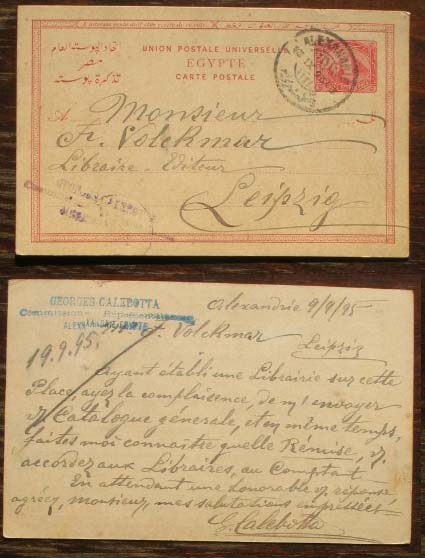 اتحاد بوستة العام
مصر
تذكرة بوستة
UNION POSTALE UNIVERSELLE
EGYPTE
CARTE POSTALE
ALEXANDRIE
A Monsieur
Fr. Volckmar
Libraire-Editeur
Leipzig
GEORGES CALEBOTTA
Commissions Représentations
ALEXANDRIE EGYPTE
Alexandrie 9/9/95
19.9.95.
F. Volckmar
Leipzig
Ayant établi une Librairie sur cette
Place, ayez la complaisence, de m'envoyer
v. Catalogue génerale, et en même temps,
faites moi connaitre quelle Rémise, v.
accordez aux Libraires, au Comptant
En attendant une honorable v. réponse
agréez, Monsieur, mes salutations empressées
G Calebotta